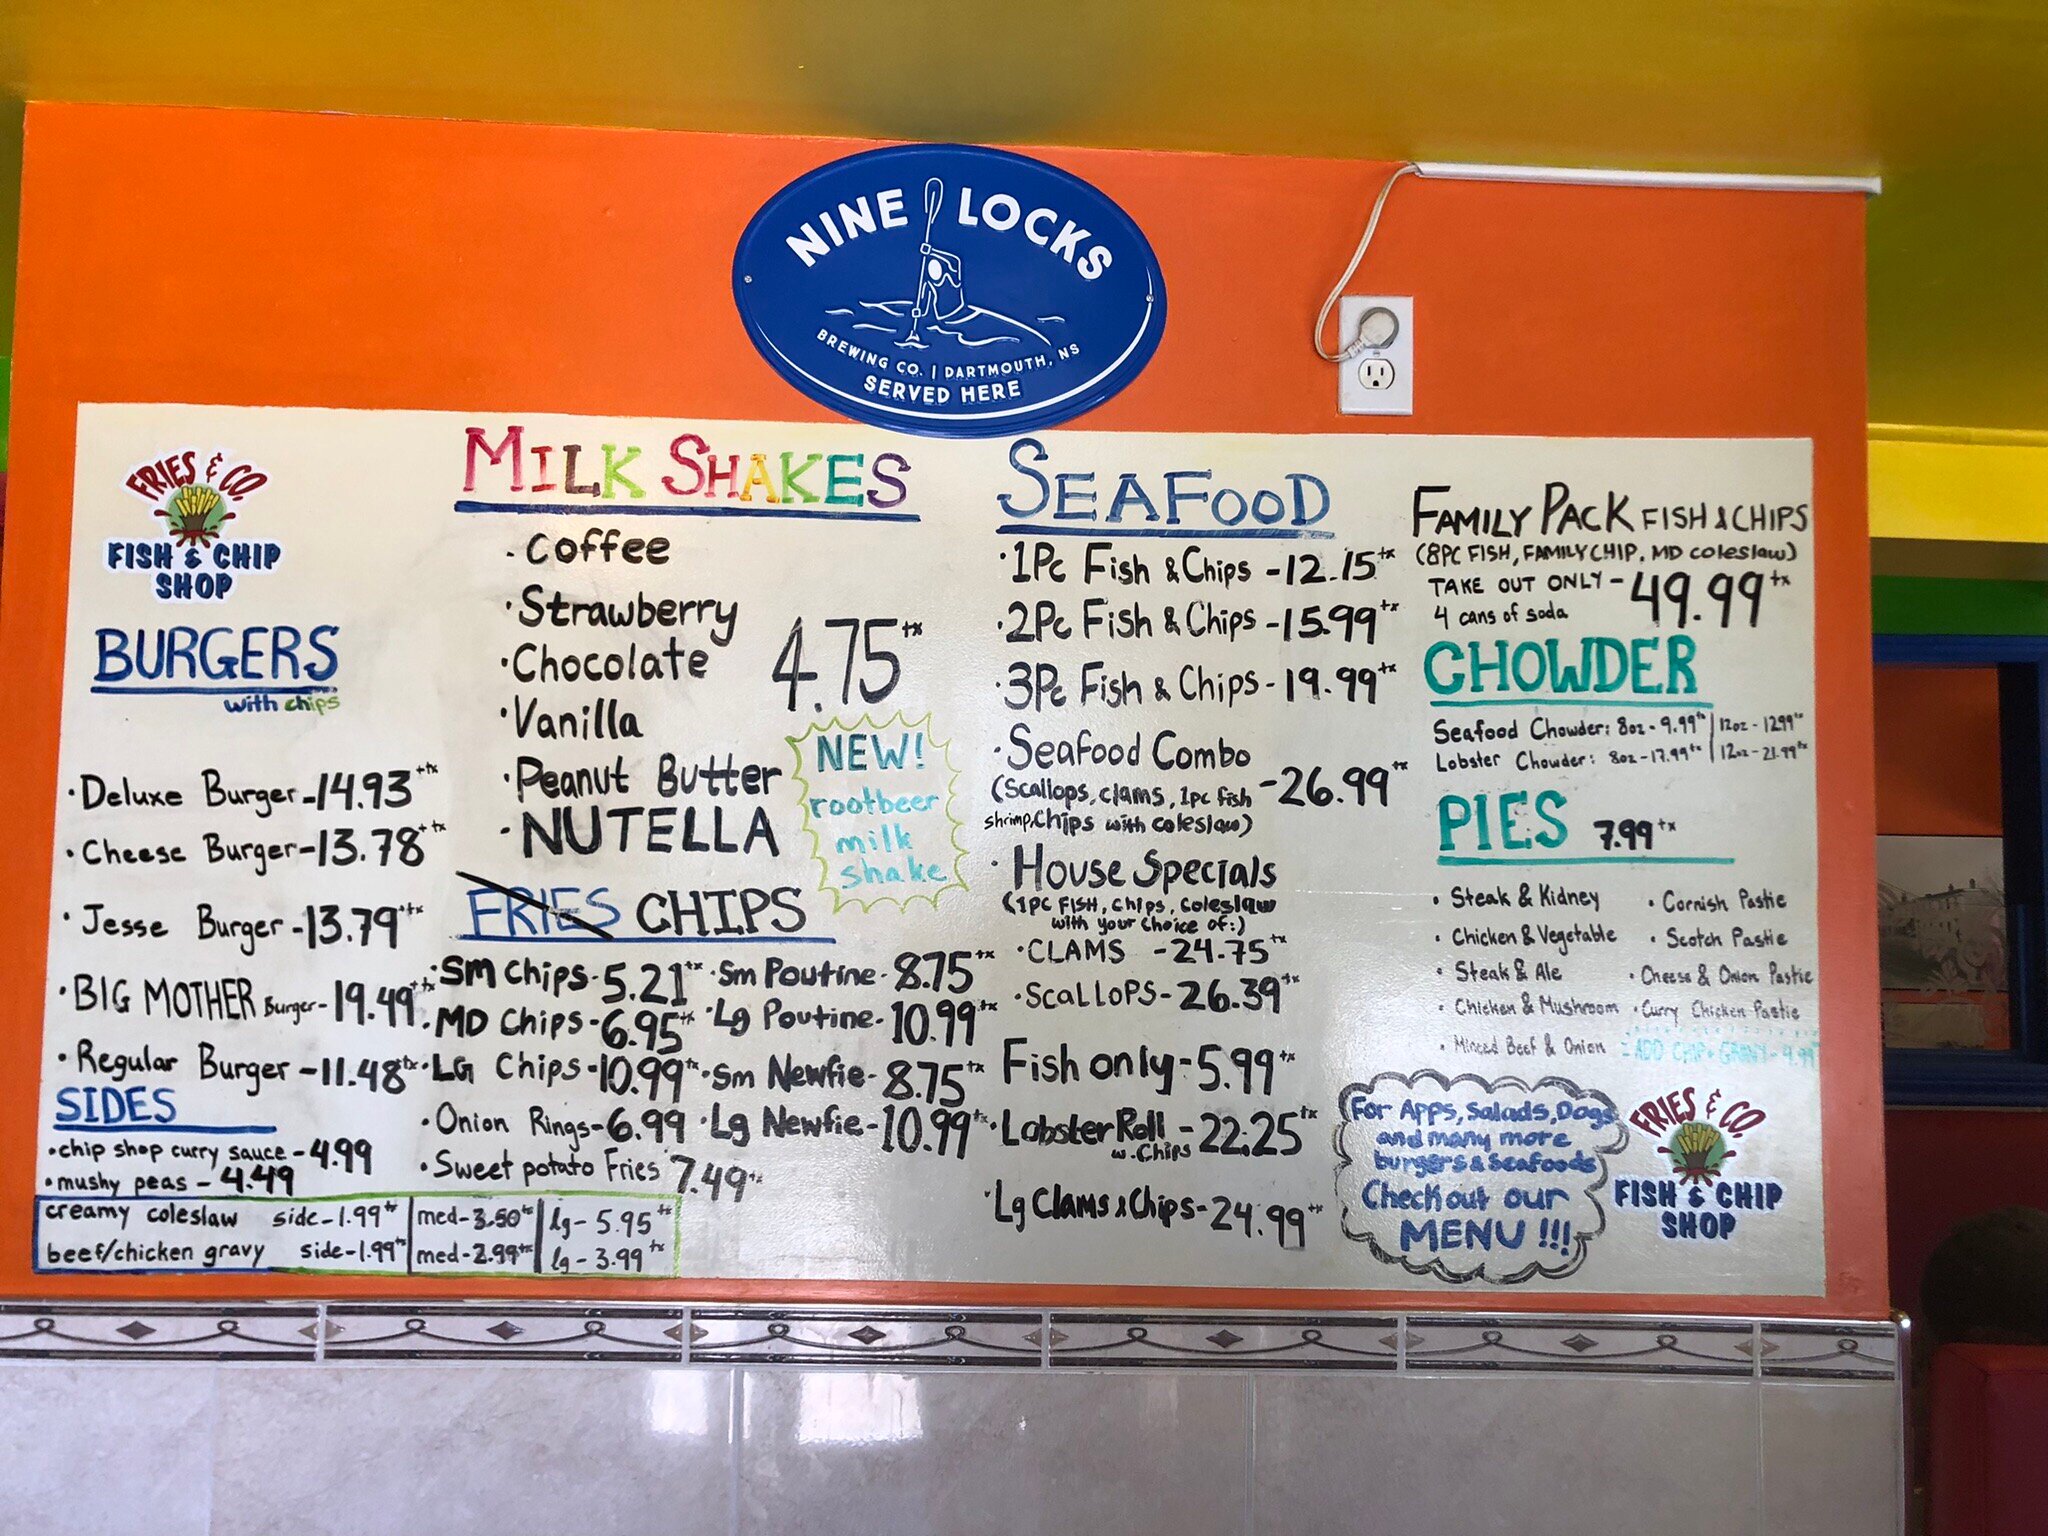 NINE LOCKS
BREWING CO. | DARTMOUTH, NS
SERVED HERE
FRIES & CO.
FISH & CHIP
SHOP
BURGERS
with chips
· Deluxe Burger - 14.93 +tx
· Cheese Burger - 13.78 +tx
· Jesse Burger - 13.79 +tx
· BIG MOTHER Burger - 19.49 +tx
· Regular Burger - 11.48 +tx
SIDES
· chip shop curry sauce - 4.99
· mushy peas - 4.49
creamy coleslaw side - 1.99 +tx | med - 3.50 +tx | lg - 5.95 +tx
beef/chicken gravy side - 1.99 +tx | med - 2.99 +tx | lg - 3.99 +tx
MILK SHAKES
- Coffee
· Strawberry
· Chocolate
· Vanilla
· Peanut Butter
· NUTELLA
4.75 +tx
NEW!
rootbeer
milk
shake
FRIES CHIPS
· SM Chips - 5.21 +tx
· MD Chips - 6.95 +tx
· LG Chips - 10.99 +tx
· Onion Rings - 6.99
· Sweet potato Fries 7.49 +tx
· Sm Poutine - 8.75 +tx
· Lg Poutine - 10.99 +tx
· Sm Newfie - 8.75 +tx
· Lg Newfie - 10.99 +tx
SEAFOOD
· 1Pc Fish & Chips - 12.15 +tx
· 2Pc Fish & Chips - 15.99 +tx
· 3Pc Fish & Chips - 19.99 +tx
· Seafood Combo - 26.99 +tx
(Scallops, clams, 1pc fish
shrimp, chips with coleslaw)
· House Specials
(1PC FISH, chips, coleslaw
with your choice of:)
· CLAMS - 24.75 +tx
· SCALLOPS - 26.39 +tx
Fish only - 5.99 +tx
· Lobster Roll - 22.25 +tx
w. Chips
· Lg Clams & Chips - 24.99 +tx
FAMILY PACK FISH & CHIPS
(8PC FISH, FAMILY CHIP, MD coleslaw)
TAKE OUT ONLY - 49.99 +tx
4 cans of soda
CHOWDER
Seafood Chowder: 8oz - 9.99 +tx | 12oz - 12.99 +tx
Lobster Chowder: 8oz - 17.99 +tx | 12oz - 21.99 +tx
PIES 7.99 +tx
· Steak & Kidney
· Chicken & Vegetable
· Steak & Ale
· Chicken & Mushroom
· Minced Beef & Onion
· Cornish Pastie
· Scotch Pastie
· Cheese & Onion Pastie
· Curry Chicken Pastie
ADD CHIP + GRAVY - 4.99
For Apps, Salads, Dogs
and many more
burgers & seafoods
Check out our
MENU !!!
FRIES & CO.
FISH & CHIP
SHOP